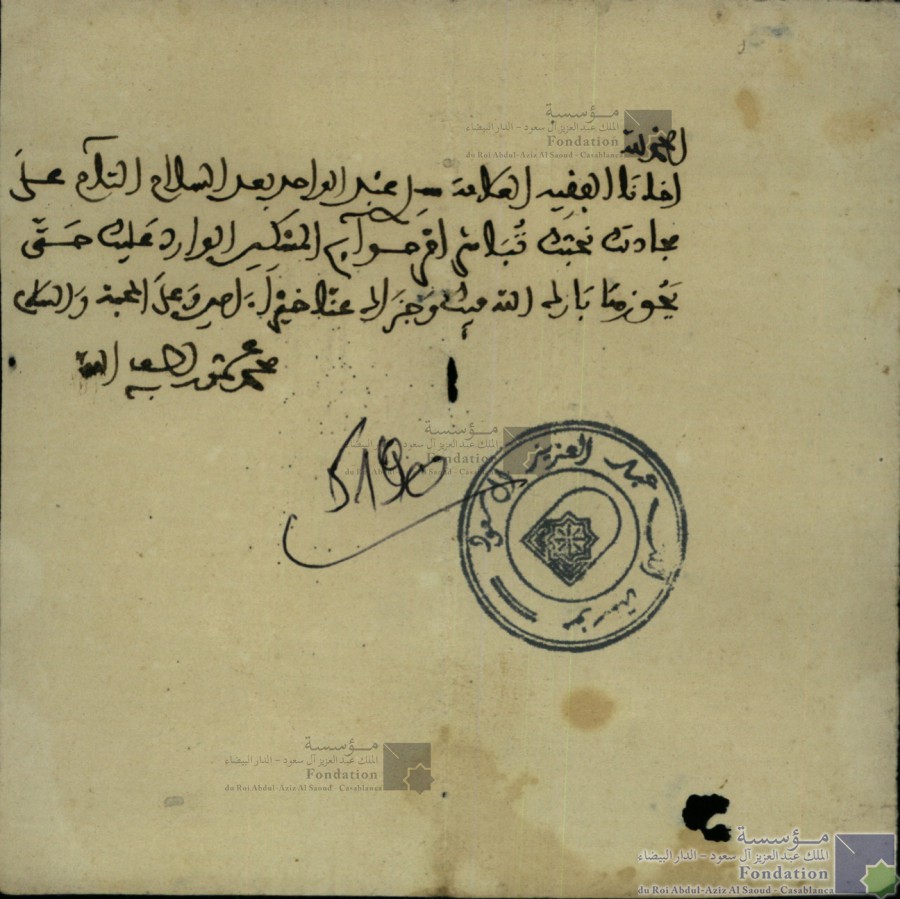 الحمد لله
اخانا الفقيه العلامة س عبد الواحد بعد السلام التام على
مجادتك نحبك تباشر امر الوارد عليك حتى
يحوز متا بارك الله فيك وجزاك عنا خيرا وعلى المحبة والسلام
محمد الله
5190
مؤسسة الملك عبد العزيز آل سعود
مؤسسة
الملك عبد العزيز آل سعود - الدار البيضاء
Fondation
du Roi Abdul-Aziz Al Saoud - Casablanca
مؤسسة
الملك عبد العزيز آل سعود - الدار البيضاء
Fondation
du Roi Abdul-Aziz Al Saoud - Casablanca
مؤسسة
الملك عبد العزيز آل سعود - الدار البيضاء
Fondation
du Roi Abdul-Aziz Al Saoud - Casablanca
مؤسسة
الملك عبد العزيز آل سعود - الدار البيضاء
Fondation
du Roi Abdul-Aziz Al Saoud - Casablanca